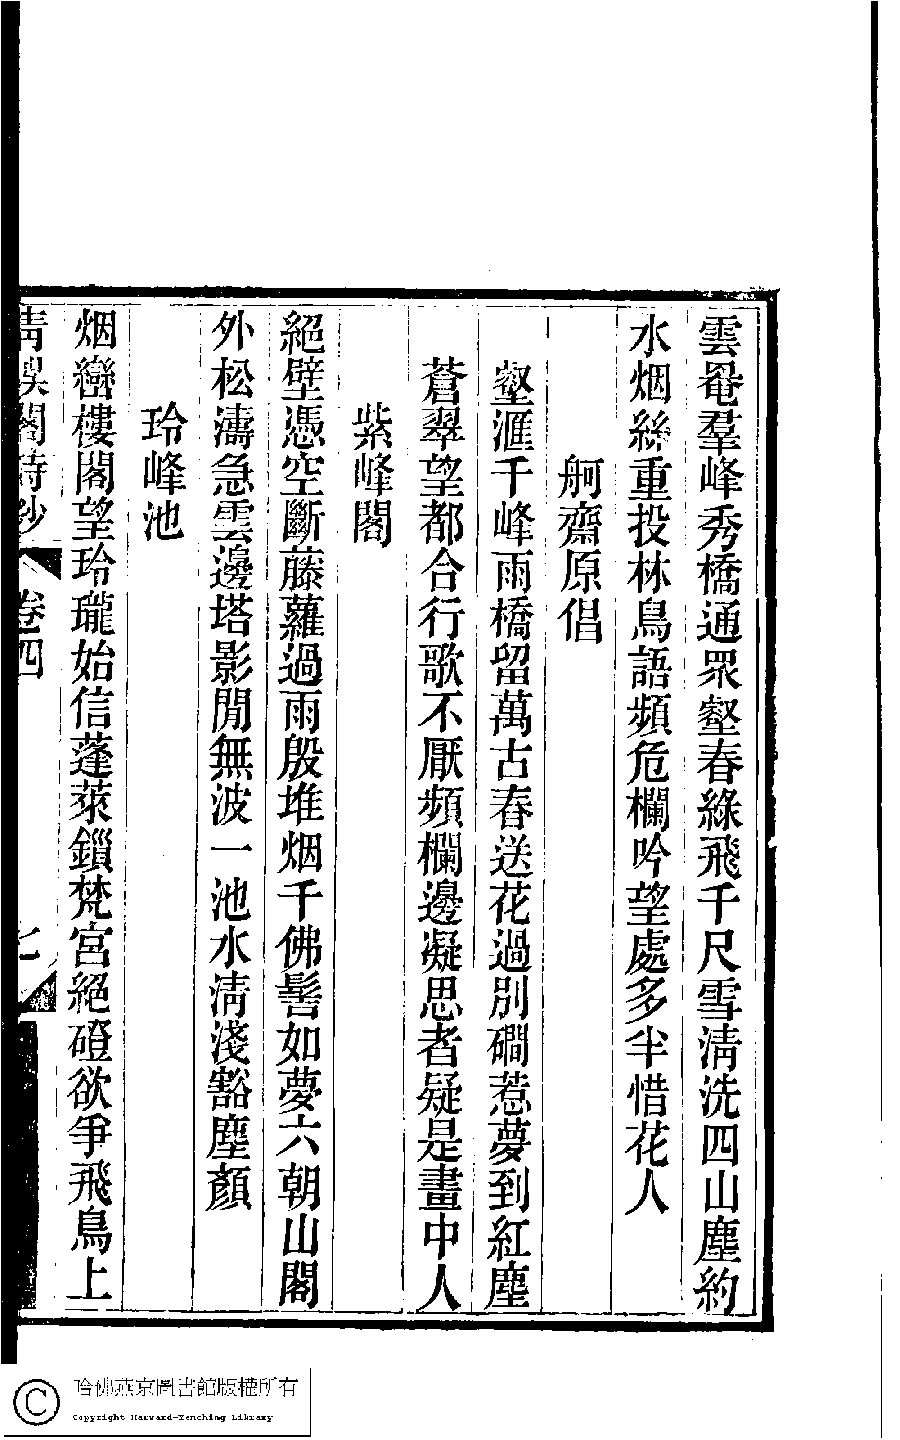 雲罨羣峰秀橋通眾壑春綠飛千尺雪清洗四山塵約
水烟絲重投林鳥語頻危欄吟望處多半惜花人
舸齋原倡
壑滙千峰雨橋留萬古春送花過別磵惹夢到紅塵
蒼翠望都合行歌不厭頻欄邊凝思者疑是畫中人
紫峰閣
絕壁憑空斷藤蘿過雨殷堆烟千佛髻如夢六朝山閣
外松濤急雲邊塔影閒無波一池水清淺豁塵顏
玲峰池
烟巒樓閣望玲瓏始信蓬萊鎻梵宮絕磴欲爭飛鳥上
卷四
哈佛燕京圖書館版權所有
Copyright Harvard-Yenching Library